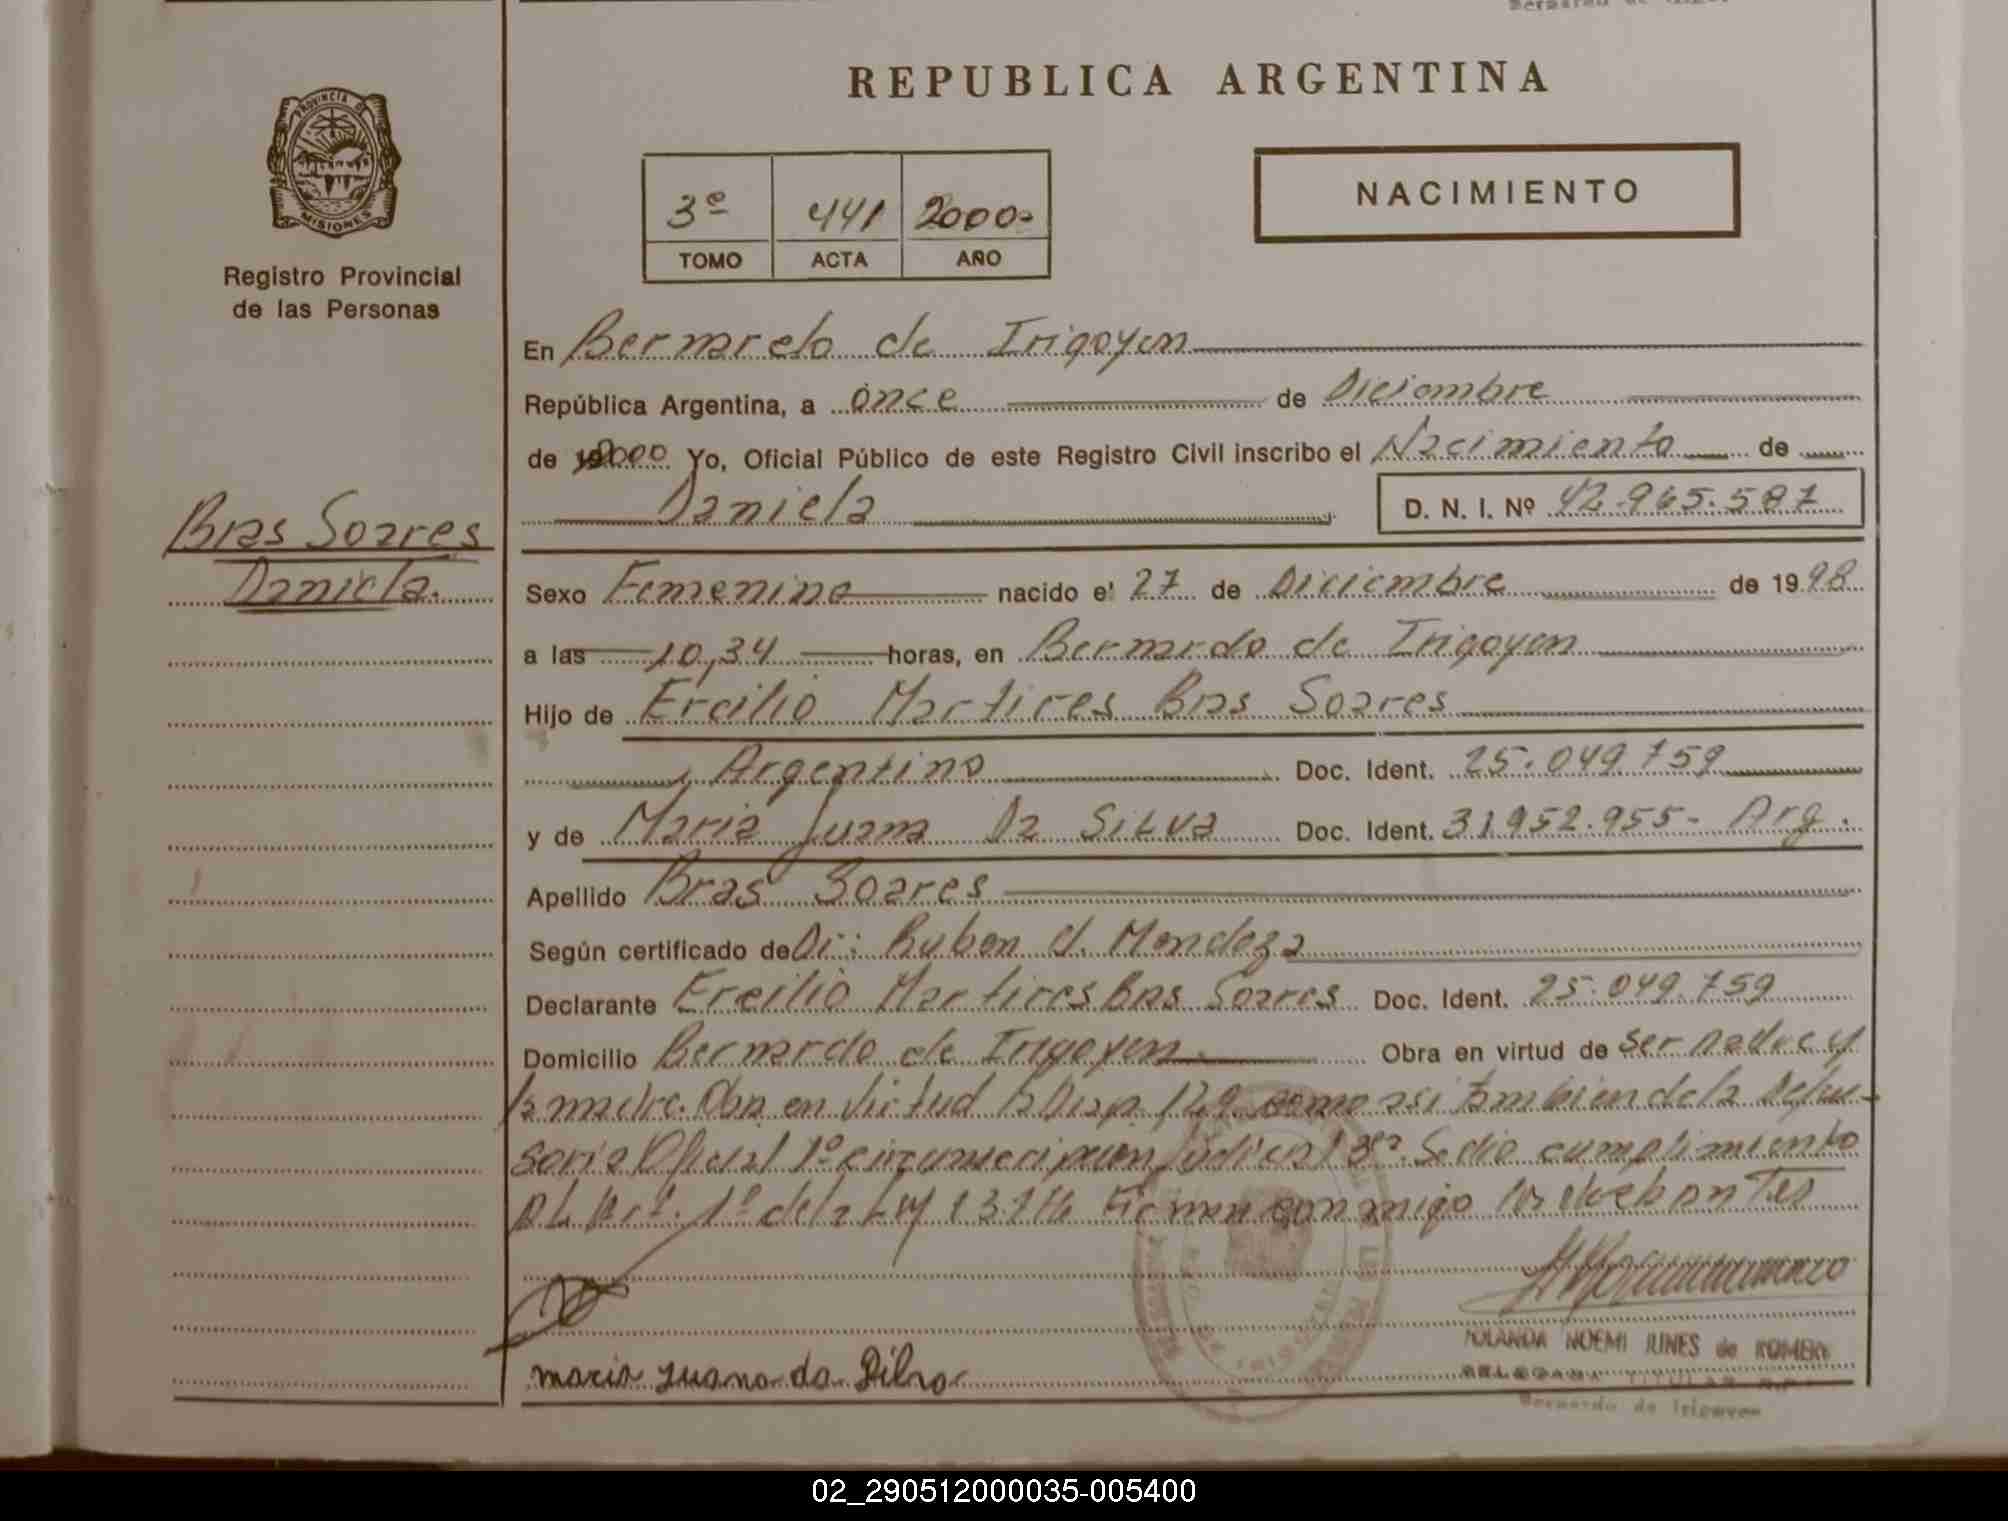 REPUBLICA ARGENTINA
PROVINCIA DE
MISIONES
Registro Provincial
de las Personas
3º 441 2000-
TOMO ACTA AÑO
NACIMIENTO
En Bernardo de Irigoyen
República Argentina, a once de Diciembre
de 2000 Yo, Oficial Público de este Registro Civil inscribo el Nacimiento de
Daniela D. N. I. Nº 42.965.587
Bras Soares
Daniela.
Sexo Femenino nacido el 27 de Diciembre de 1998
a las 10,34 horas, en Bernardo de Irigoyen
Hijo de Ercilio Martires Bras Soares
Argentino Doc. Ident. 25.049.759
y de Maria Juana Da Silva Doc. Ident. 31952.955- Arg.
Apellido Bras Soares
Según certificado de Dr: Ruben d. Mendoza
Declarante Ercilio Martires Bras Soares Doc. Ident. 25.049.759
Domicilio Bernardo de Irigoyen. Obra en virtud de ser
la madre. Obra en virtud la Disp. 129 como asi tambien de la Defen-
soria Oficial 1º circunscripcion Judicial 3ª. Se dio cumplimiento
Al Art. 1º de la Ley Firman conmigo los
maria Juana da Silva
YOLANDA NOEMI de
DELEGADA TITULAR
Bernardo de Irigoyen
02_290512000035-005400